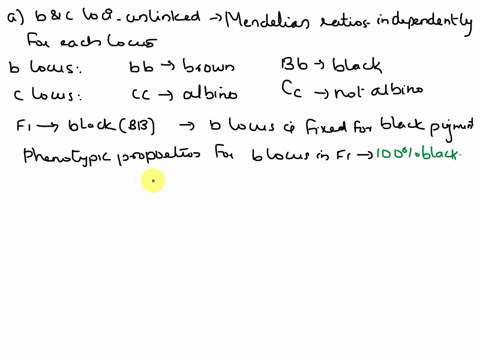 a) b & c loci - unlinked → Mendelian ratios independently
For each locus
b locus: bb → brown Bb → black
c locus: cc → albino Cc → not albino
F1 → black (BB) → b locus is fixed for black pigment
Phenotypic proportion for b locus in F1 → 100% black.